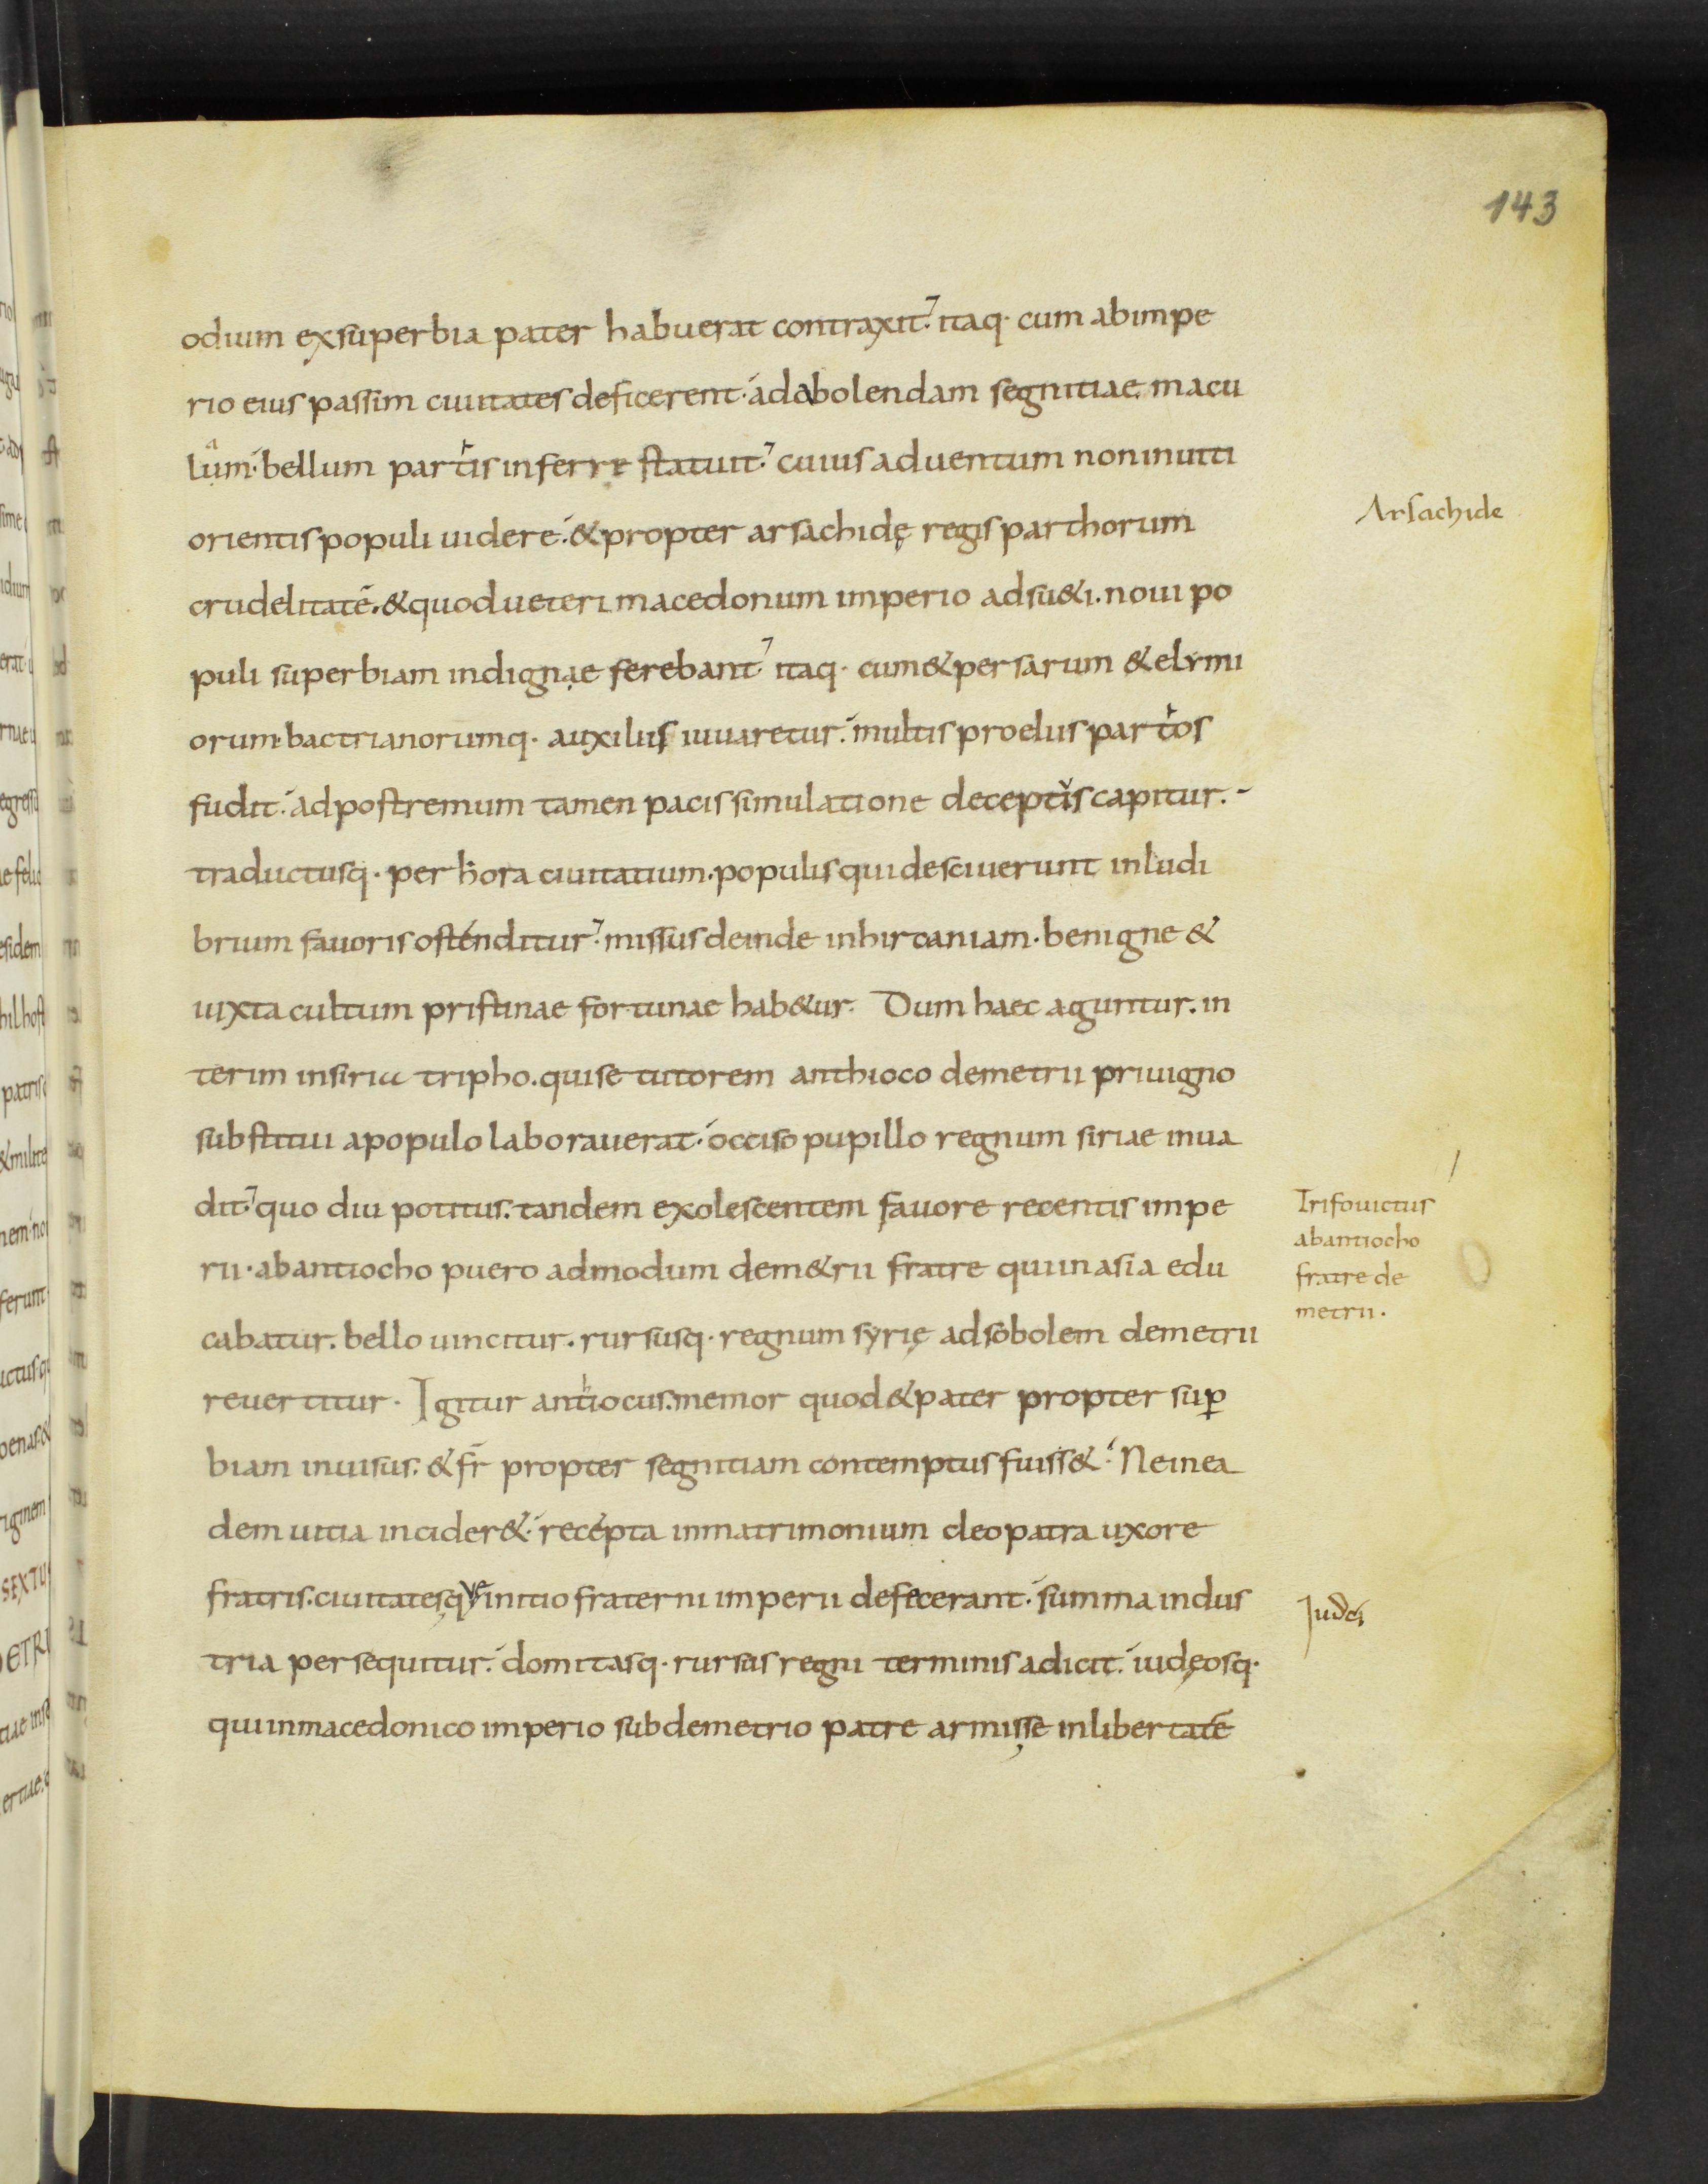 143
odium exsuperbia pater habuerat contraxit. itaq· cum abimpe
rio eius passim ciuitates deficerent. adabolendam segnitiae macu
lum. bellum parthis inferre statuit. cuius aduentum noninuiti
Arsachide
orientis populi uidere. & propter arsachidę regis parthorum
crudelitatē. & quod ueteri macedonum imperio adsu&i. noui po
puli superbiam indignae ferebant. itaq· cum & persarum & elymi
orum. bactrianorumq· auxiliis iuuaretur. multis proeliis parthos
fudit. adpostremum tamen pacis simulatione deceptus capitur.
traductusq· per hora ciuitatium. populis qui desciuerunt inludi
brium fauoris ostenditur. missus deinde inhircaniam. benigne &
iuxta cultum pristinae fortunae hab&ur. Dum haec aguntur. in
terim insiria tripho. qui se tutorem anthioco demetrii priuigno
substitui apopulo laborauerat. occiso pupillo regnum siriae inua
dit. quo diu potitus. tandem exolescentem fauore recentis impe
Trifo uictus
abantiocho
fratre de
metrii.
rii. abantiocho puero admodum dem&rii fratre qui inasia edu
cabatur. bello uincitur. rursusq· regnum syrię adsobolem demetrii
reuertitur. Igitur anthiocus. memor quod & pater propter sup̱
biam inuisus. & fr̄ propter segnitiam contemptus fuiss&. Neinea
dem uitia incider&. recepta inmatrimonium cleopatra uxore
fratris. ciuitatesq ve initio fraterni imperii defecerant. summa indus
Iudei
tria persequitur. domitasq· rursus regni terminis adicit. iudęosq·
qui inmacedonico imperio subdemetrio patre armis se inlibertatē